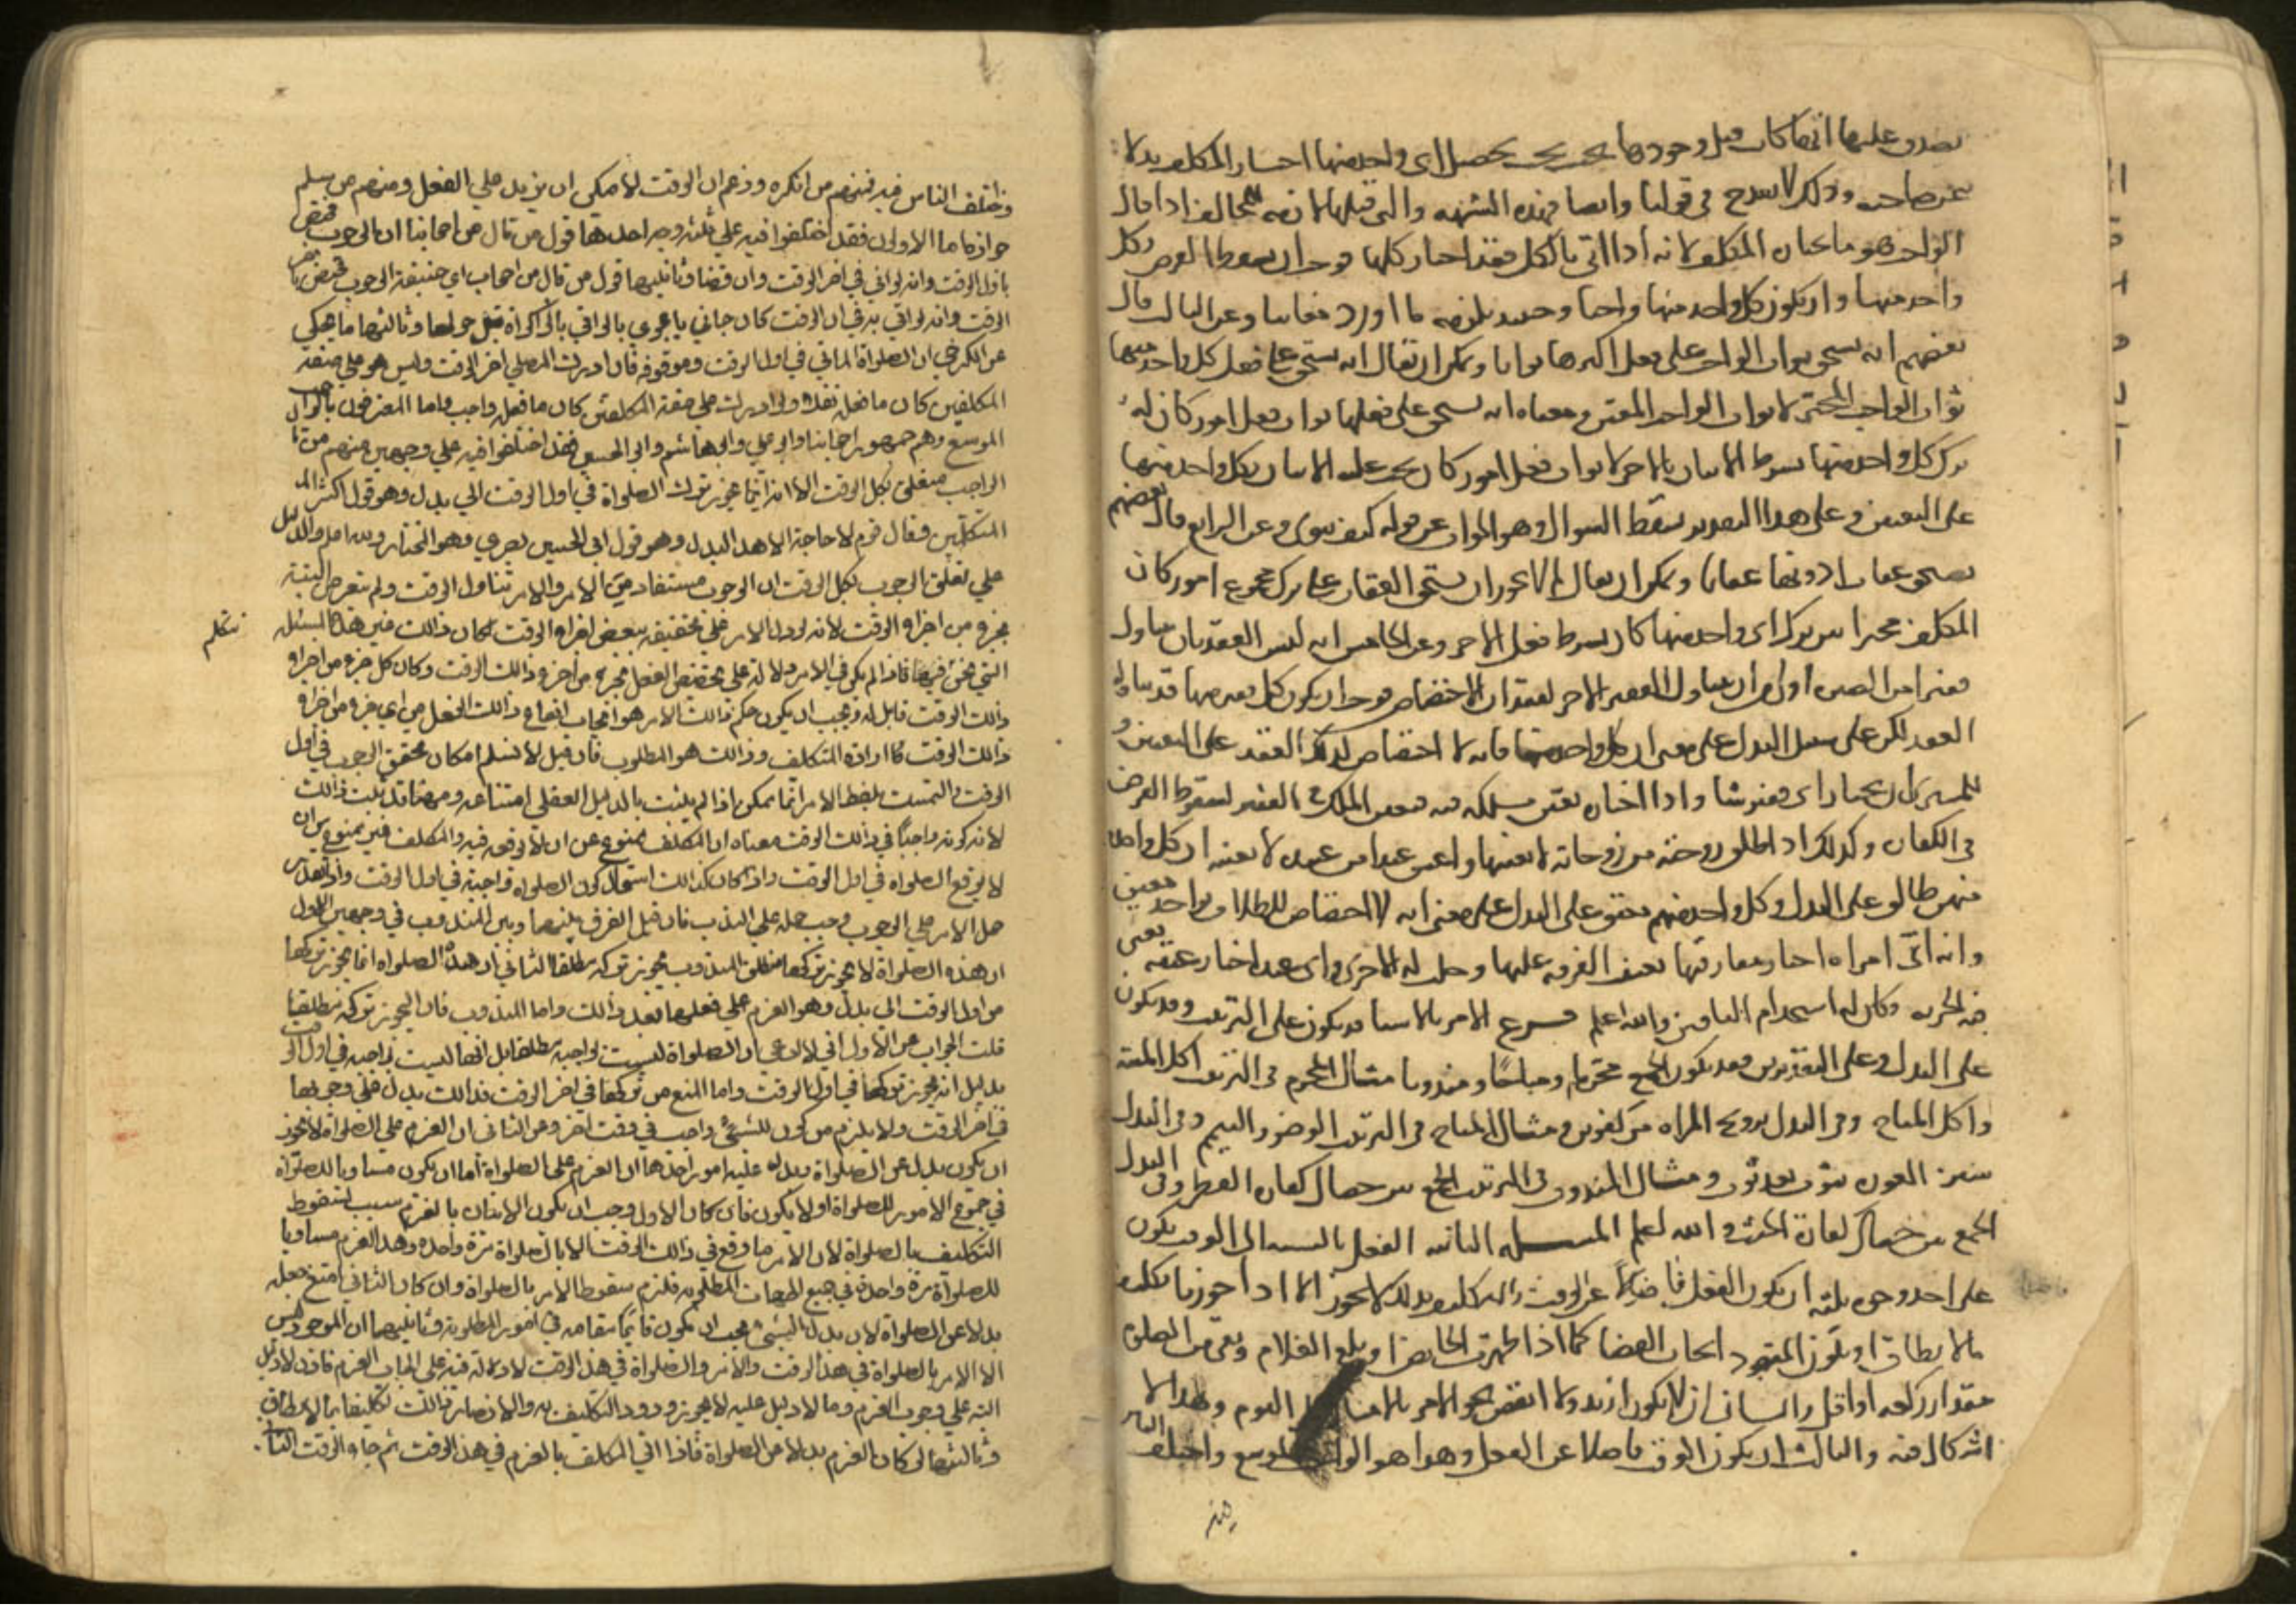 يصدق عليها انها كانت قبل وجودها بحيث يجب تحصيل اى واحد منها اختار المكلف بدلا
عن صاحبه وذلك لا يقدح فى قولنا وايضا فهذه الشبهة والتى قبلها لازمة للمخالف اذا قال
الواحد هو ما يختاره المكلف لانه اذا اتى بالكل فقد اختار كلها فوجب ان يسقط الفرض بكل
واحد منها وان يكون كل واحد منها واجبا وحينئذ يلزمه ما اورد علينا وعن الثالث قال
بعضهم انه يستحق ثواب الواجب على فعل اكثرها ثوابا ويمكن ان يقال انه يستحق على فعل كل واحد منها
ثواب الواجب المخير لا ثواب الواحد المعين ومعناه انه يستحق على فعلها ثواب فعل امور كان له
ترك كل واحد منها بشرط الاتيان بالاخر لا ثواب فعل امور كان يجب عليه الاتيان بكل واحد منها
على التعيين وعلى هذا التقدير يسقط السوال وهو الجواب عن قوله كيف ينوى وعن الرابع قال بعضهم
يستحق عقاب ادونها عقابا ويمكن ان يقال لم لا يجوز ان يستحق العقاب على ترك مجموع امور كان
المكلف مخيرا بين ترك اى واحد منها كان بشرط فعل الاخر وعن الخامس انه ليس العقد بان يتناول
قفيزا من الصبرة اولى من ان يتناول القفيز الاخر لفقدان الاختصاص فوجب ان يكون كل قفيز منها قد تناوله
العقد لكن على سبيل البدل على معنى ان كل واحد منها فانه لا اختصاص لذلك العقد على التعيين و
للمشترى ان يختار اى قفيز شا واذا اختاره تعين ملكه فيه فتعين الملك فى القفيز كسقوط الفرض
فى الكفارة وكذلك اذا طلق زوجة من زوجاته لا بعينها واعتق عبدا من عبيده لا بعينه ان كل واحدة
منهن طالق على البدل وكل واحد منهم معتق على البدل على معنى انه لا اختصاص للطلاق بواحد معين
وانه اى امراة اختار مفارقتها تعينت الفرقة عليها وحلت له الاخرى واى عبد اختار عتقه تعين
فيه الحرية وكان له استخدام الباقين والله اعلم فرع الامر بالاشيا قد يكون على الترتيب وقد يكون
على البدل وعلى التقديرين قد يكون الجمع محرما ومباحا ومندوبا مثال المحرم فى الترتيب اكل الميتة
واكل المباح وفى البدل تزويج المراة من كفوين ومثال المباح فى الترتيب الوضو والتيمم وفى البدل
ستر العورة بثوب بعد ثوب ومثال المندوب فى الترتيب الجمع بين خصال كفارة الفطر وفى البدل
الجمع بين خصال كفارة الحنث والله اعلم المسئلة الثانية الفعل بالنسبة الى الوقت يكون
على احد وجوه ثلثة ان يكون الفعل فاضلا عن الوقت والتكليف بذلك لا يجوز الا اذا جوزنا تكليف
ما لا يطاق او يكون المقصود ايجاب القضا كما اذا طهرت الحايض او بلغ الغلام وبقى من الصلوة
مقدار ركعة او اقل والثانى ان لا يكون ازيد ولا انقص نحو الامر بامساك اليوم وهذا لا
اشكال فيه والثالث ان يكون الوقت فاضلا عن الفعل وهذا هو الواجب الموسع واختلف الناس
فيه
واختلف الناس فيه فمنهم من انكره وزعم ان الوقت لا يمكن ان يزيد على الفعل ومنهم من يسلم
جوازه اما الاولون فقد اختلفوا فيه على ثلثة وجه احدها قول من قال من اصحابنا ان الوجوب مختص
باول الوقت وانه لو اتى فى اخر الوقت وان قضا وثانيها قول من قال من اصحاب ابى حنيفة الوجوب مختص باخر
الوقت وانه لو اتى به فى اول الوقت كان جاريا مجرى ما لو اتى بالزكواة قبل حولها وثالثها ما يحكى
عن الكرخى ان الصلواة الماتى فى اول الوقت وموقوفة فان ادرك المصلى اخر الوقت وليس هو على صفة
المكلفين كان ما فعله نفلا وان ادرك على صفة المكلفين كان ما فعله واجب واما المعترفون بالواجب
الموسع وهم جمهور اصحابنا وابو على وابى هاشم وابو الحسين فقد اختلفوا فيه على وجهين منهم من قا
الواجب متعلق بكل الوقت الا انه انما يجوز ترك الصلواة فى اول الوقت الى بدل وهو قول اكثر الم
المتكلمين وقال قوم لا حاجة الى هذا البدل وهو قول ابى الحسين بصرى وهو المختار ويدل اما والدليل
على تعلق الوجوب بكل الوقت ان الوجوب مستفاد من الامر والامر تناول الوقت ولم يتعرض البتة
بجزو من اجزاو الوقت لانه لو دل الامر على تخصيصه ببعض اجزاو الوقت لكان ذالك غير هذا المسئلة
نتكلم
التى نحن فيها فاذا لم يكن فى الامر دلالة على تخصيص الفعل بجزو من اجزو ذالك الوقت وكان كل جزو من اجزاو
ذالك الوقت قابل له وجب ان يكون حكم ذالك الامر هو ايجاب ايقاع ذالك الفعل من اى جزو من اجزاو
ذالك الوقت كما اراده المتكلف وذالك هو المطلوب فان قيل لا نسلم امكان تحقق الوجوب فى اول
الوقت والتمسك بلفظ الامر انما يمكن اذا لم يثبت بالدليل العقلى امتناعه وههنا قد ثبت ذالك
لانه كونه واجبا فى ذالك الوقت معناه ان المكلف ممنوع عن ان لا يوقعه فيه والمكلف غير ممنوع من ان
لا يوقع الصلواة فى اول الوقت واذا كان كذالك استحال كون الصلواة واجبة فى اول الوقت واذا تعذر
حمل الامر على الوجوب وجب حمله على الندب فان قيل الفرق بينهما وبين المندوب فى وجهين الاول
ان هذه الصلواة لا يجوز تركها مطلقا المندوب يجوز تركه مطلقا الثانى ان هذه الصلواة انما يجوز تركها
من اول الوقت الى بدل وهو العزم على فعلها بعد ذالك واما المندوب فان يجوز تركه مطلقا
قلت الجواب عن الاول انى لا ادعى ان الصلواة ليست بواجبة مطلقا بل انها ليست بواجبة فى اول الوقت
بدليل انه يجوز تركها فى اول الوقت واما المنع من تركها فى اخر الوقت فذالك يدل على وجوبها
فى اخر الوقت ولا يلزم من كون الشى واجب فى وقت اخر وعن الثانى ان العزم على الصلواة لا يجوز
ان يكون بدل عن الصلواة ويدل عليه امور احدها ان العزم على الصلواة اما ان يكون مساويا للصلواة
فى جموع الامور للصلواة او لا يكون فان كان الاول وجب ان يكون الاتيان بالعزم سبب لسقوط
التكليف بالصلواة لان الامر ما وقع فى ذالك الوقت الا بالصلواة مرة واحدة وهذا العزم مساويا
للصلواة مرة واحدة فى جميع الجهات المطلوبة فلزم سقوط الامر بالصلواة وان كان الثانى امتنع جعله
بدلا عن الصلواة لان بدل الشى يجب ان يكون قايما مقامه فى امور المطلوبة وثانيها ان الموجود ليس
الا الامر بالصلواة فى هذا الوقت والامر والصلواة فى هذا الوقت لا دلالة فيه على ايجاب العزم فاذن لا دليل
البتة على وجوب العزم وما لا دليل عليه لا يجوز ورود التكليف به والا صار ذالك تكليفا بما لا يطاق
وثالثها لو كان العزم بدلا من الصلواة فاذا اتى المكلف بالعزم فى هذا الوقت ثم جاو الوقت الثا